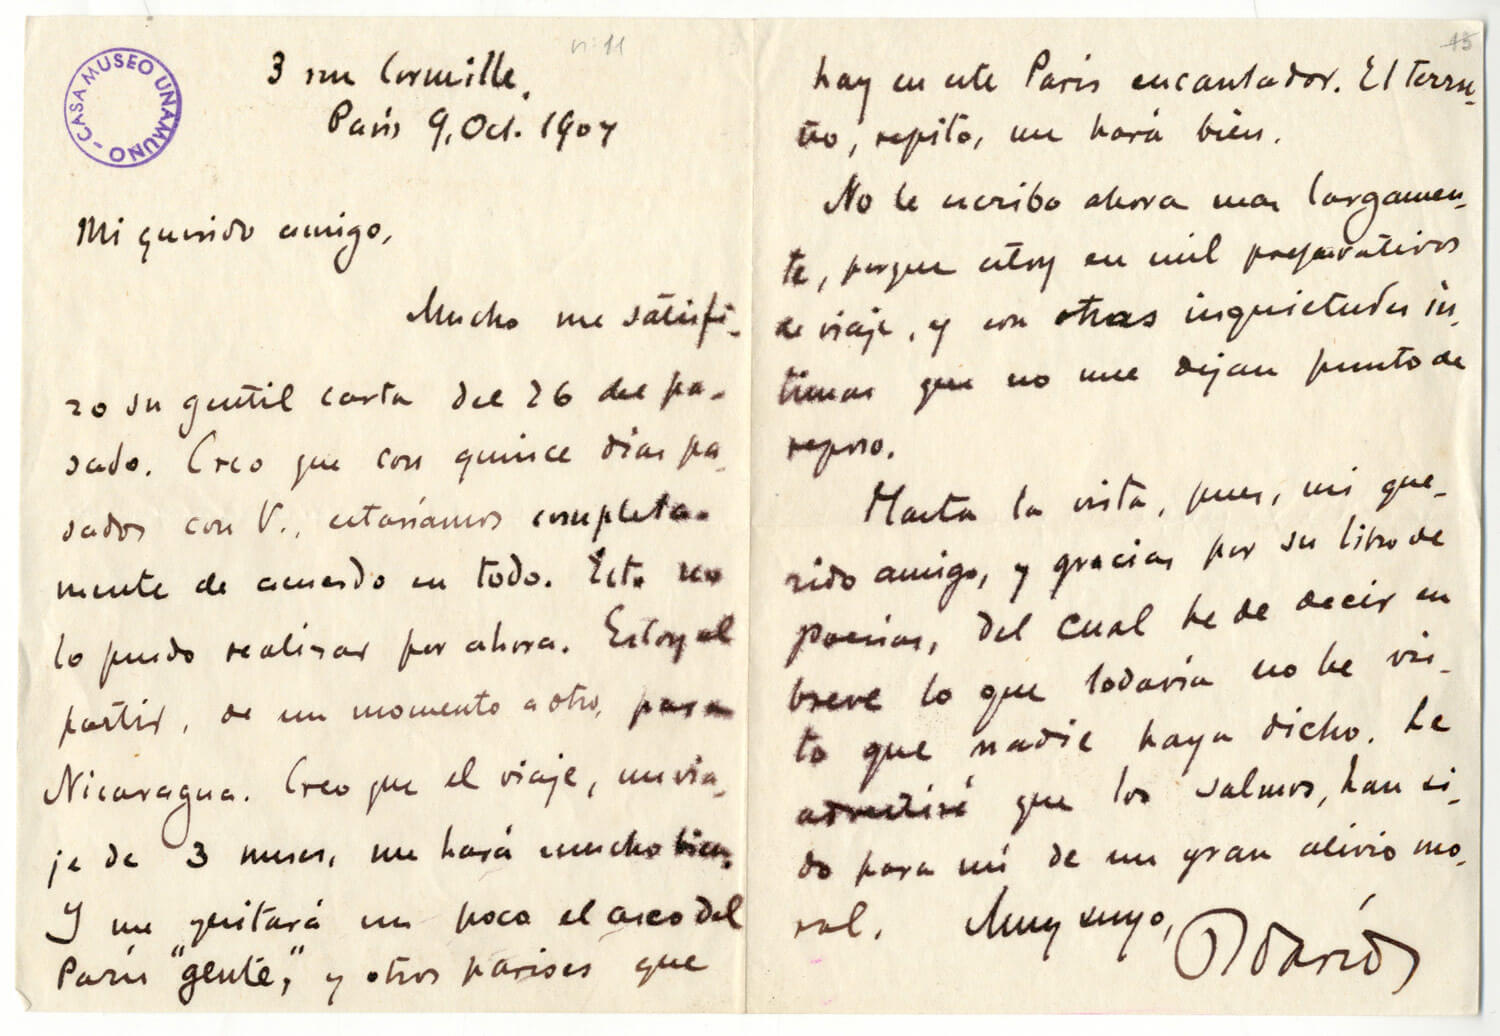 CASA MUSEO UNAMUNO -
nº 11
3 rue Corneille,
París 9, Oct. 1907
Mi querido amigo,
Mucho me satisfi-
zo su gentil carta del 26 del pa-
sado. Creo que con quince días pa-
sados con V., estaríamos completa-
mente de acuerdo en todo. Esto no
lo puedo realizar por ahora. Estoy al
partir, de un momento a otro, para
Nicaragua. Creo que el viaje, un via-
je de 3 meses, me hará mucho bien.
Y me quitará un poco el asco del
París "gente", y otros parises que
15
hay en este París encantador. El terru-
ño, repito, me hará bien.
No le escribo ahora mas largamen-
te, porque estoy en mil preparativos
de viaje, y con otras inquietudes ín-
timas que no me dejan punto de
reposo.
Hasta la vista, pues, mi que-
rido amigo, y gracias por su libro de
poesías, del cual he de decir en
breve lo que todavía no he vis-
to que nadie haya dicho. Le
advertiré que los salmos, han si-
do para mí de un gran alivio mo-
ral. Muy suyo,
R Darío